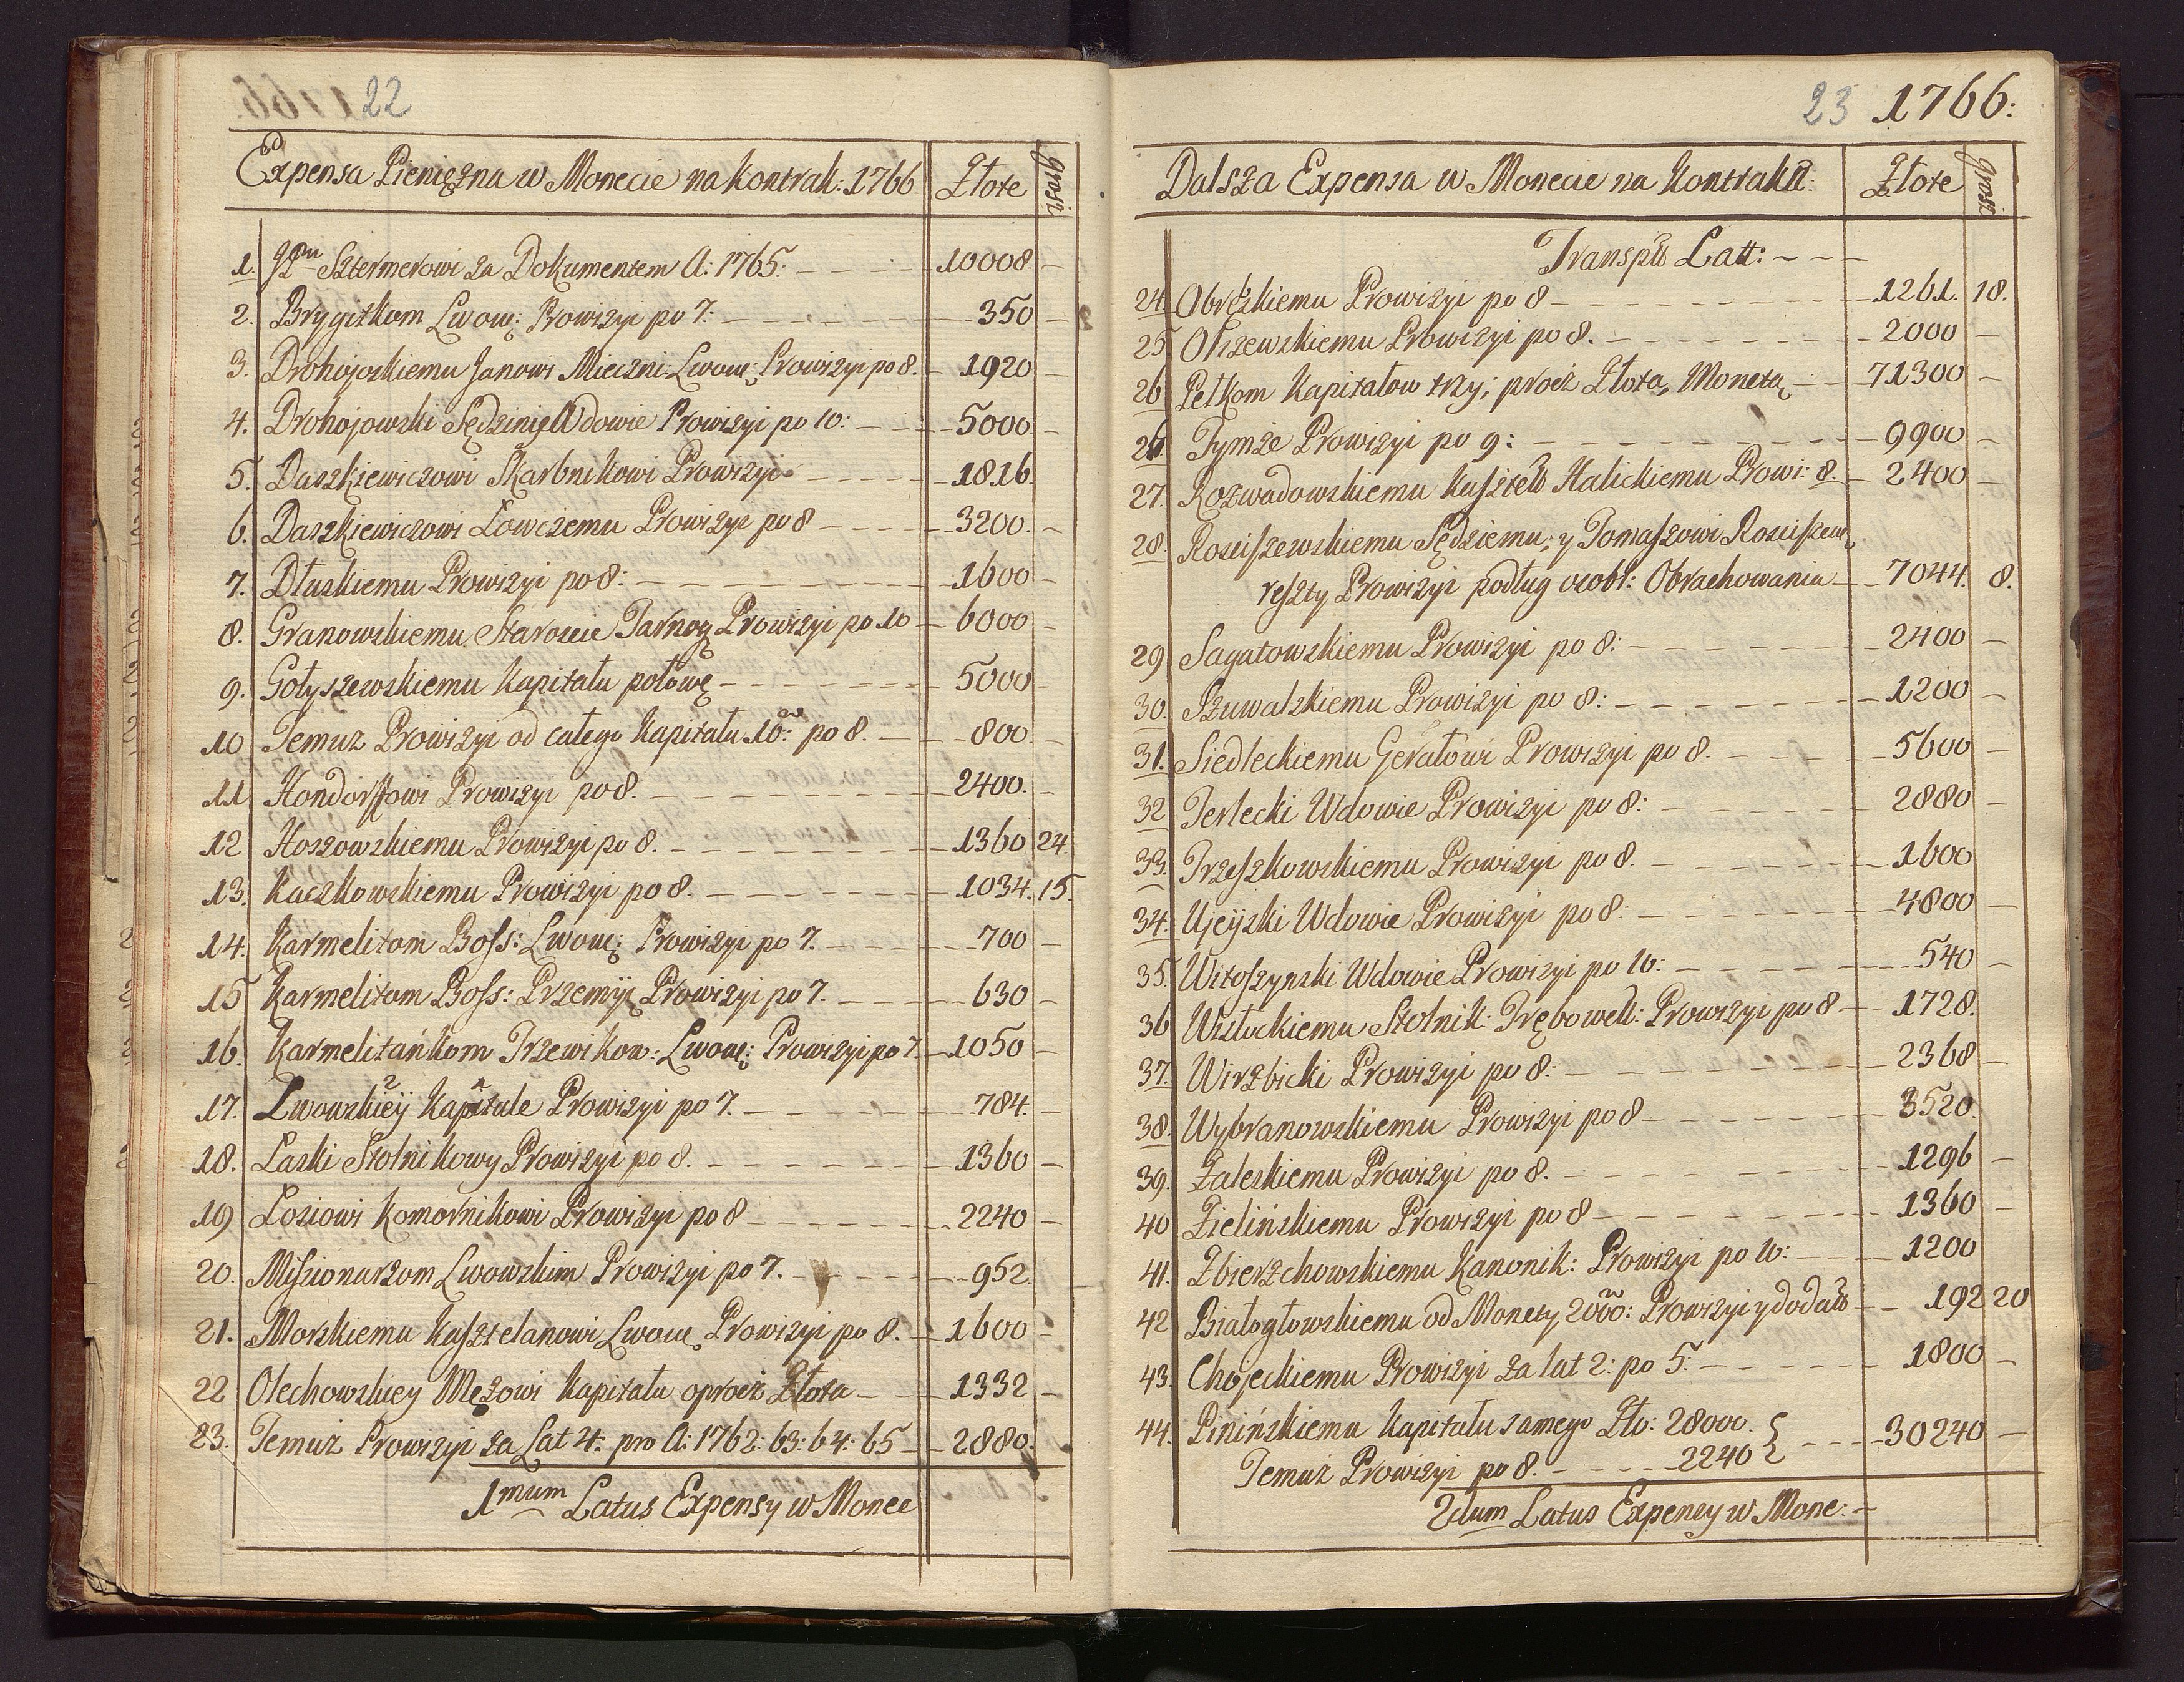 22
Expensa Pieniężna w Monecie na Kontrak: 1766
Złote
grosz
1. JPnu Sztermerowi za Dokumentem A: 1765: 10008
2. Brygitkom Lwow: Prowizyi po 7: 350
3. Drohojoskiemu Janowi Mieczni: Lwow: Prowizyi po 8. 1920
4. Drohojowski Sędzinie Wdowie Prowizyi po 10: 5000
5. Daszkiewiczowi Skarbnikowi Prowizyi 1816
6. Daszkiewiczowi Łowczemu Prowizyi po 8 3200.
7. Dłuskiemu Prowizyi po 8: 1600
8. Granowskiemu Staroscie Tarnog Prowizyi po 10 6000
9. Gołyszewskiemu Kapitału połowę 5000
10 Temuz Prowizyi od całego Kapitału 10: po 8. 800
11 Hondorffowi Prowizyi po 8. 2400.
12 Hoszowskiemu Prowizyi po 8. 1360 24.
13. Kaczkowskiemu Prowizyi po 8. 1034. 15.
14. Karmelitom Boss: Lwow: Prowizyi po 7. 700
15 Karmelitom Boss: Przemyś Prowizyi po 7. 630
16. Karmelitańkom Trzewikow: Lwow: Prowizyi po 7. 1050
17. Lwowskiey Kapitule Prowizyi po 7. 784.
18. Laski Stolnikowy Prowizyi po 8. 1360
19) Łosiowi Komornikowi Prowizyi po 8 2240
20. Missionarzom Lwowskim Prowizyi po 7. 952.
21. Morskiemu Kasztelanowi Lwow Prowizyi po 8. 1600
22 Olechowskiey Mężowi Kapitału oprocz Złota 1332
23. Temuż Prowizyi za Lat 4: pro A: 1762: 63: 64: 65 2880.
1mum Latus Expensy w Monee
23 1766:
Dalsza Expensa w Monecie na Kontrakt:
Złote
grosz
Transp Latt:
24. Obręskiemu Prowizyi po 8 1261. 18.
25. Olszewskiemu Prowizyi po 8. 2000
26 Pełkom Kapitałow trzy; procz Złota, Monetą 71300
26 Tymże Prowizyi po 9: 9900
27. Rozwadowskiemu Kasztel Halickiemu Prowi: 8. 2400
28. Rosciszewskiemu Sędziemu; y Tomaszowi Rosciszew
reszty Prowizyi podług osobl: Obrachowania 7044. 8.
29) Sagatowskiemu Prowizyi po 8: 2400
30. Szuwalskiemu Prowizyi po 8: 1200
31. Siedleckiemu Gerałowi Prowizyi po 8. 5600
32 Terlecki Wdowie Prowizyi po 8: 2880
33. Trzeszkowskiemu Prowizyi po 8. 1600
34. Ujeyski Wdowie Prowizyi po 8: 4800
35. Witoszynski Wdowie Prowizyi po 10: 540
36 Wisłockiemu Stolnik: Trębowell: Prowizyi po 8 1728.
37. Wirzbicki Prowizyi po 8: 2368
38. Wybranowskiemu Prowizyi po 8 3520.
39. Zaleskiemu Prowizyi po 8. 1296
40 Zielińskiemu Prowizyi po 8 1360
41. Zbierzchowskiemu Kanonik: Prowizyi po 10: 1200
42 Białogłowskiemu od Monety 2000: Prowizyi y dodał 192 20
43. Chojeckiemu Prowizyi za lat 2: po 5: 1800
44. Pinińskiemu Kapitału samego Zło: 28000. 30240
Temuż Prowizyi po 8. 2240
2dum Latus Expensy w Mone: